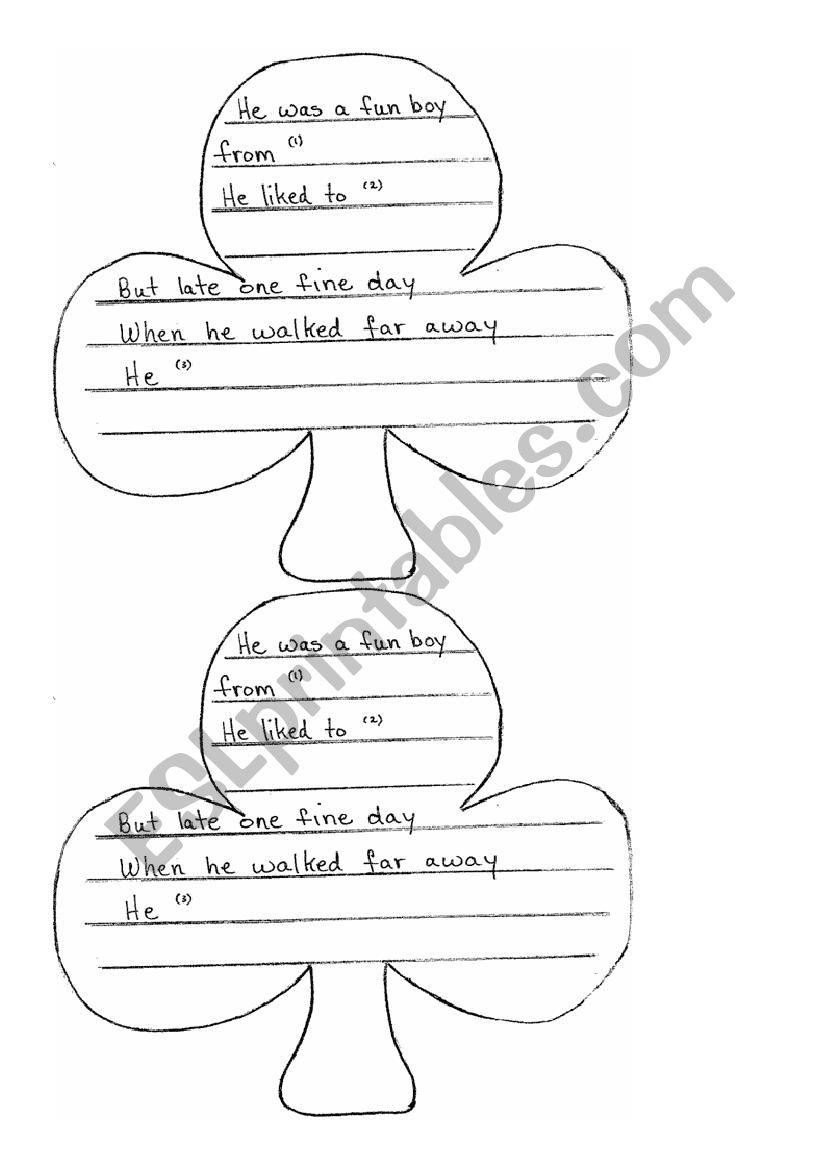 He was a fun boy
from (1)
He liked to (2)
But late one fine day
When he walked far away
He (3)
He was a fun boy
from (1)
He liked to (2)
But late one fine day
When he walked far away
He (3)
ESLprintables.com